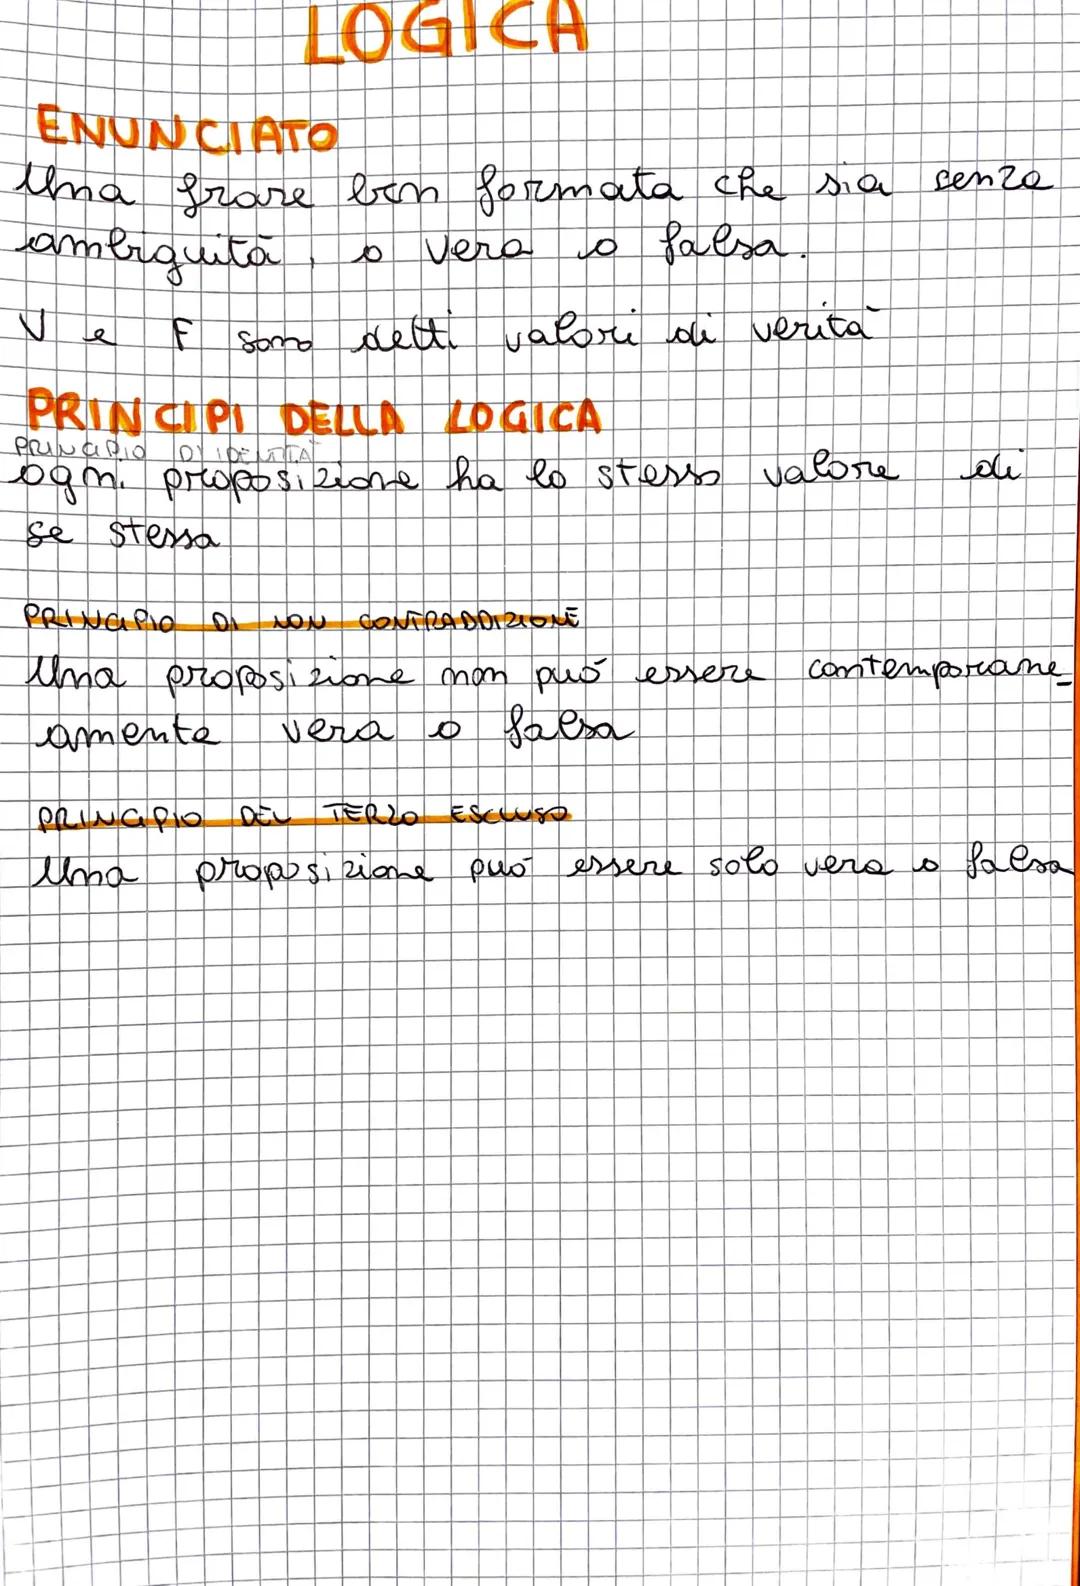 LOGICA
ENUNCIATO
Una frase ben formata che sia senza
ambiguità, o vera o falsa.
V e F sono detti valori di verità
PRINCIPI DELLA LOGICA
PRINCIPIO D'IDENTITÀ
ogni proposizione ha lo stesso valore di
se stessa
PRINCIPIO DI NON CONTRADDIZIONE
Una proposizione non può essere contemporane_
amente vera o falsa
PRINCIPIO DEL TERZO ESCLUSO
Una proposizione può essere solo vera o falsa